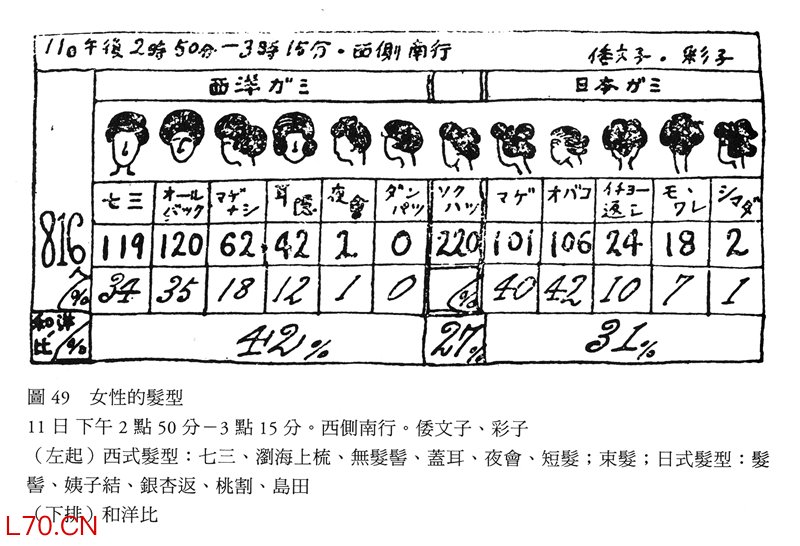 11日午後2時50分—3時15分・西側南行 倭文子・彩子
西洋ガミ 日本ガミ
七三 オールバック マゲナシ 耳隠 夜會 ダンパツ ソクハツ マゲ オバコ イチョー返シ モヽワレ シマダ
816 119 120 62 42 2 0 220 101 106 24 18 2
% 34 35 18 12 1 0 % 40 42 10 7 1
和洋比 % 42% 27% 31%
圖 49 女性的髮型
11 日下午 2 點 50 分－3 點 15 分。西側南行。倭文子、彩子
（左起）西式髮型：七三、瀏海上梳、無髮髻、蓋耳、夜會、短髮；束髮；日式髮型：髮
髻、姨子結、銀杏返、桃割、島田
（下排）和洋比
L70.CN